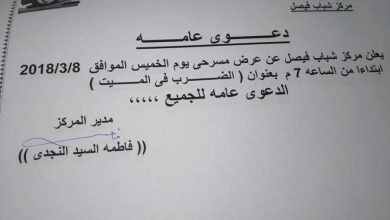 مركز شباب فيصل
دعـــوى عامـــه
يعلن مركز شباب فيصل عن عرض مسرحى يوم الخميس الموافق 2018/3/8
ابتداءا من الساعه 7 م بعنوان ( الضـرب فى المـيت )
الدعوى عامه للجميع ،،،،،
مدير المركز
(( فاطمه السيد النجدى ))